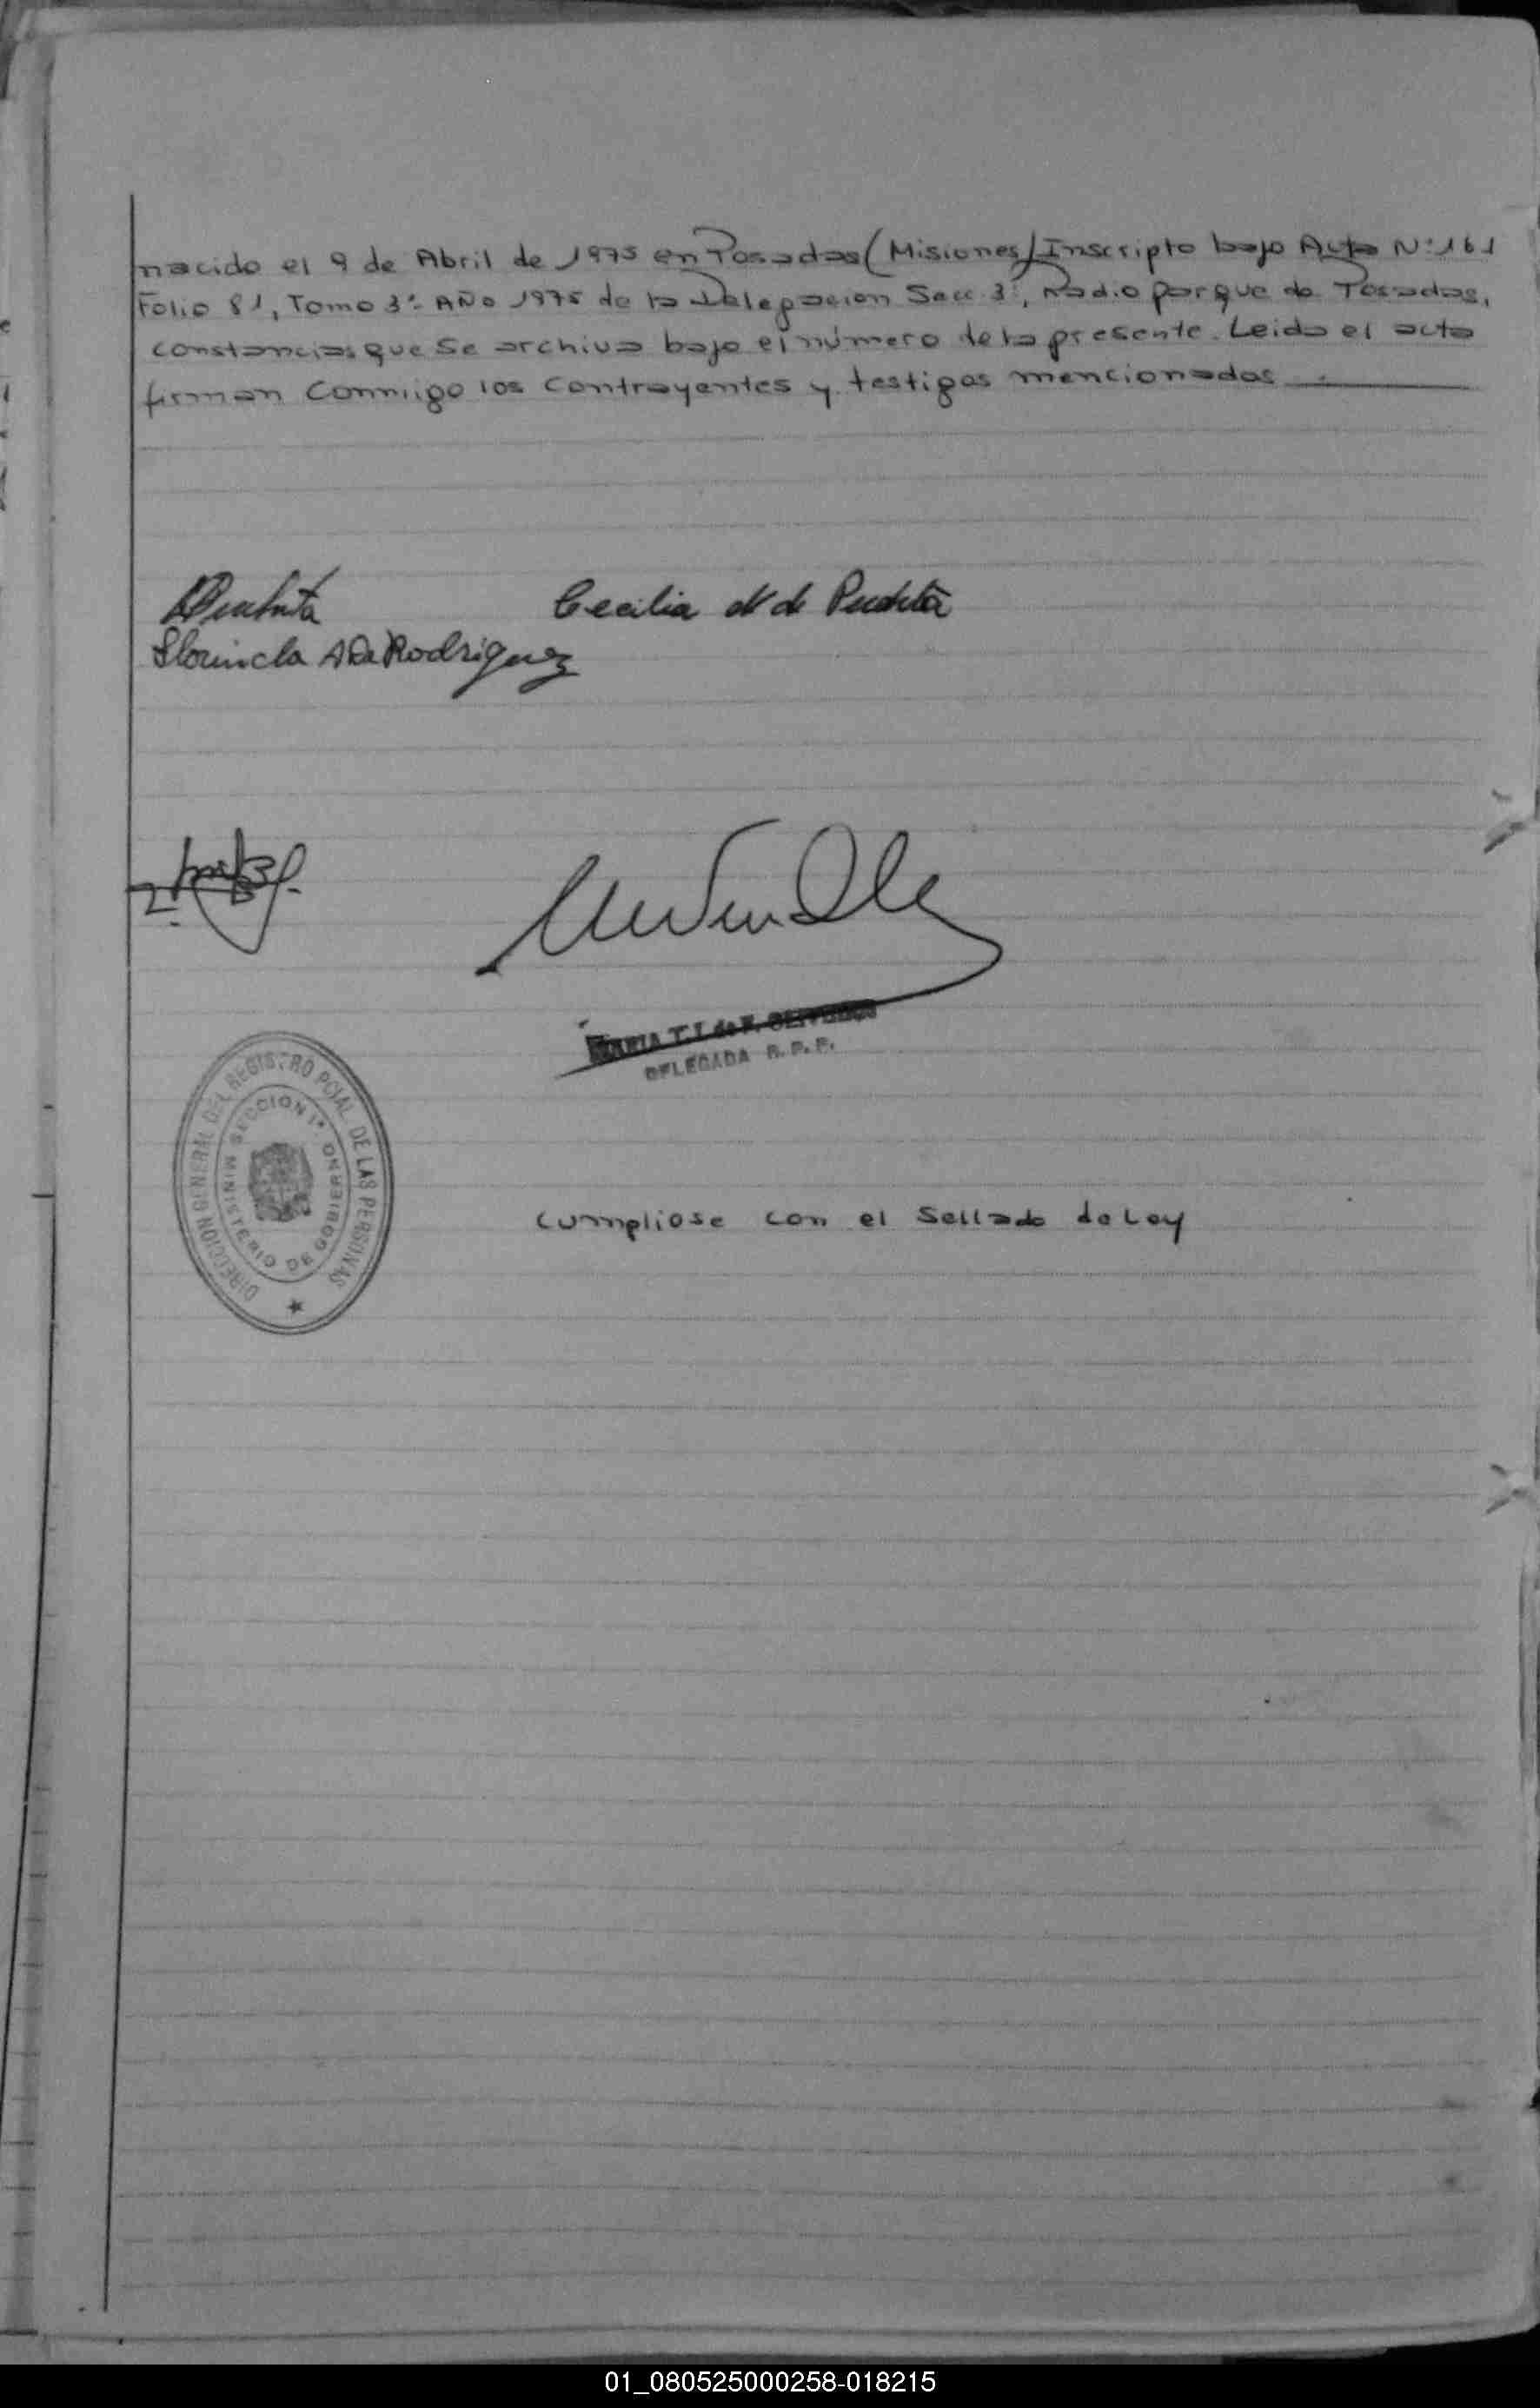 nacido el 9 de Abril de 1975 en Posadas (Misiones) Inscripto bajo Acta N: 161
Folio 81, Tomo 3º Año 1975 de la Delegacion Secc. 3ª, Radio parque de Posadas,
constancias que se archiva bajo el número de la presente. Leida el acta
firman Conmigo los Contrayentes y testigos mencionados
Cecilia N de
A De Rodriguez
MARIA T. I. de F.
DELEGADA R. P. P.
DIRECCION GENERAL DEL REGISTRO PCIAL. DE LAS PERSONAS
SECCION 1ª
MINISTERIO DE GOBIERNO
cumpliose con el Sellado de Ley
01_080525000258-018215